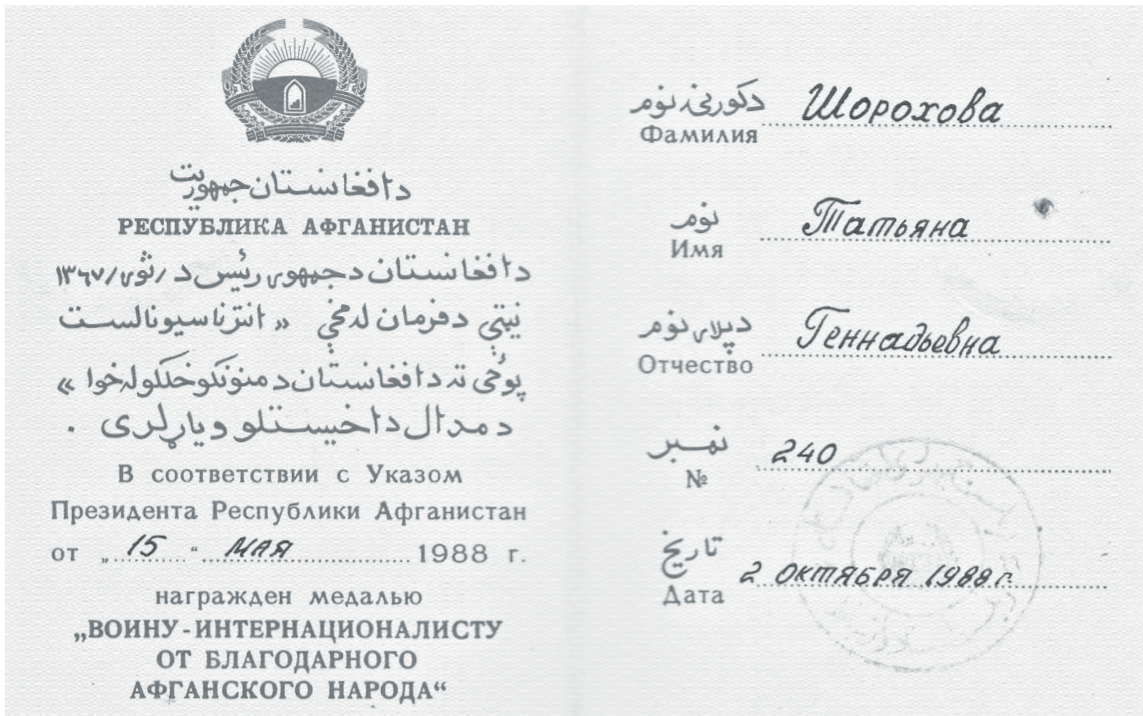 د افغانستان جمهوریت
РЕСПУБЛИКА АФГАНИСТАН
د افغانستان د جمهوری رئیس د / ثوی / ۱۳۶۷
نیټې د فرمان له مخې « انترناسیونالست
پوځي ته د افغانستان د منونکو خلکو له خوا »
د مدال د اخیستلو ویاړ لری .
В соответствии с Указом
Президента Республики Афганистан
от „ 15 “ мая 1988 г.
награжден медалью
„ВОИНУ-ИНТЕРНАЦИОНАЛИСТУ
ОТ БЛАГОДАРНОГО
АФГАНСКОГО НАРОДА“
د کورنۍ نوم
Фамилия Шорохова
نوم
Имя Татьяна
د پلار نوم
Отчество Геннадьевна
نمبر
№ 240
تاریخ
Дата 2 октября 1988 г.